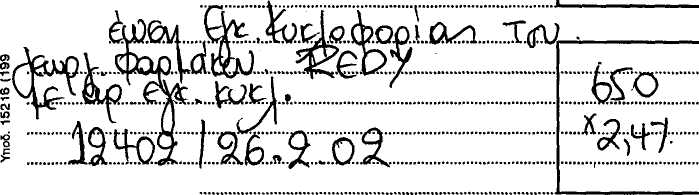 έωση εγκ. κυκλοφορίας του
γεωργ. φαρμάκου REDY
με αρ εγκ. κυκλ.
12402 / 26.2.02
650
x 2,47
Υποδ. 15216 (199